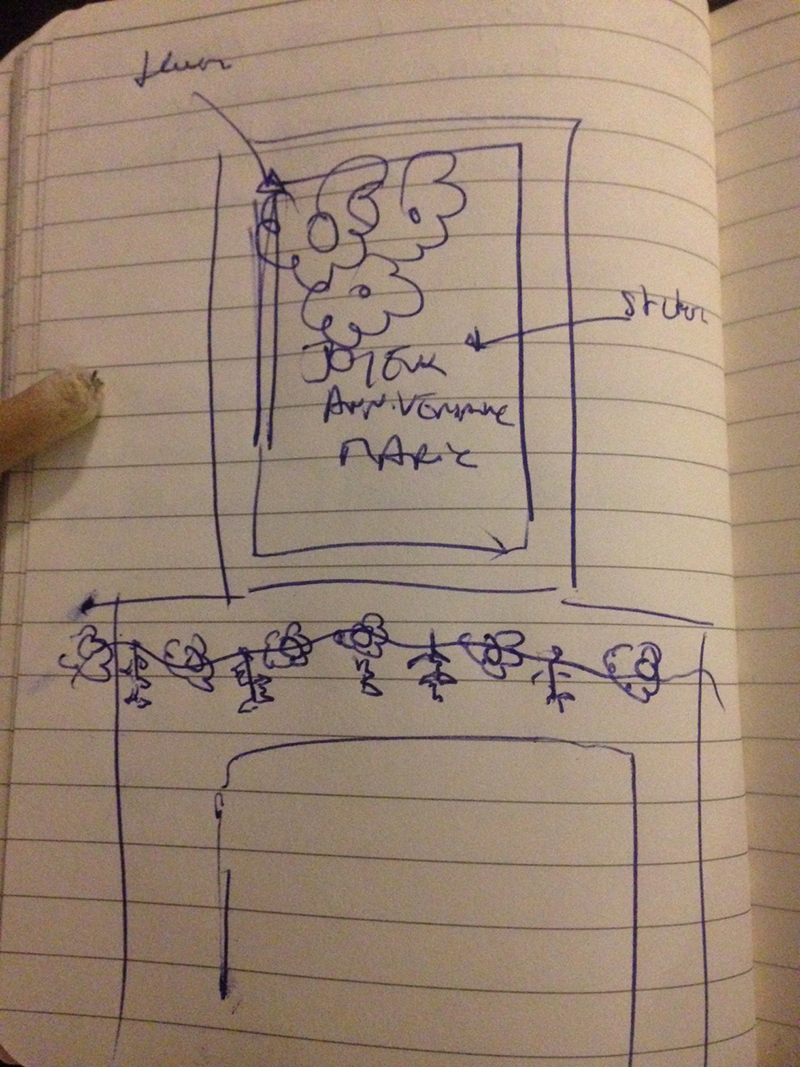 fleurs
sticker
JOYEUX
ANNIVERSAIRE
MARIE